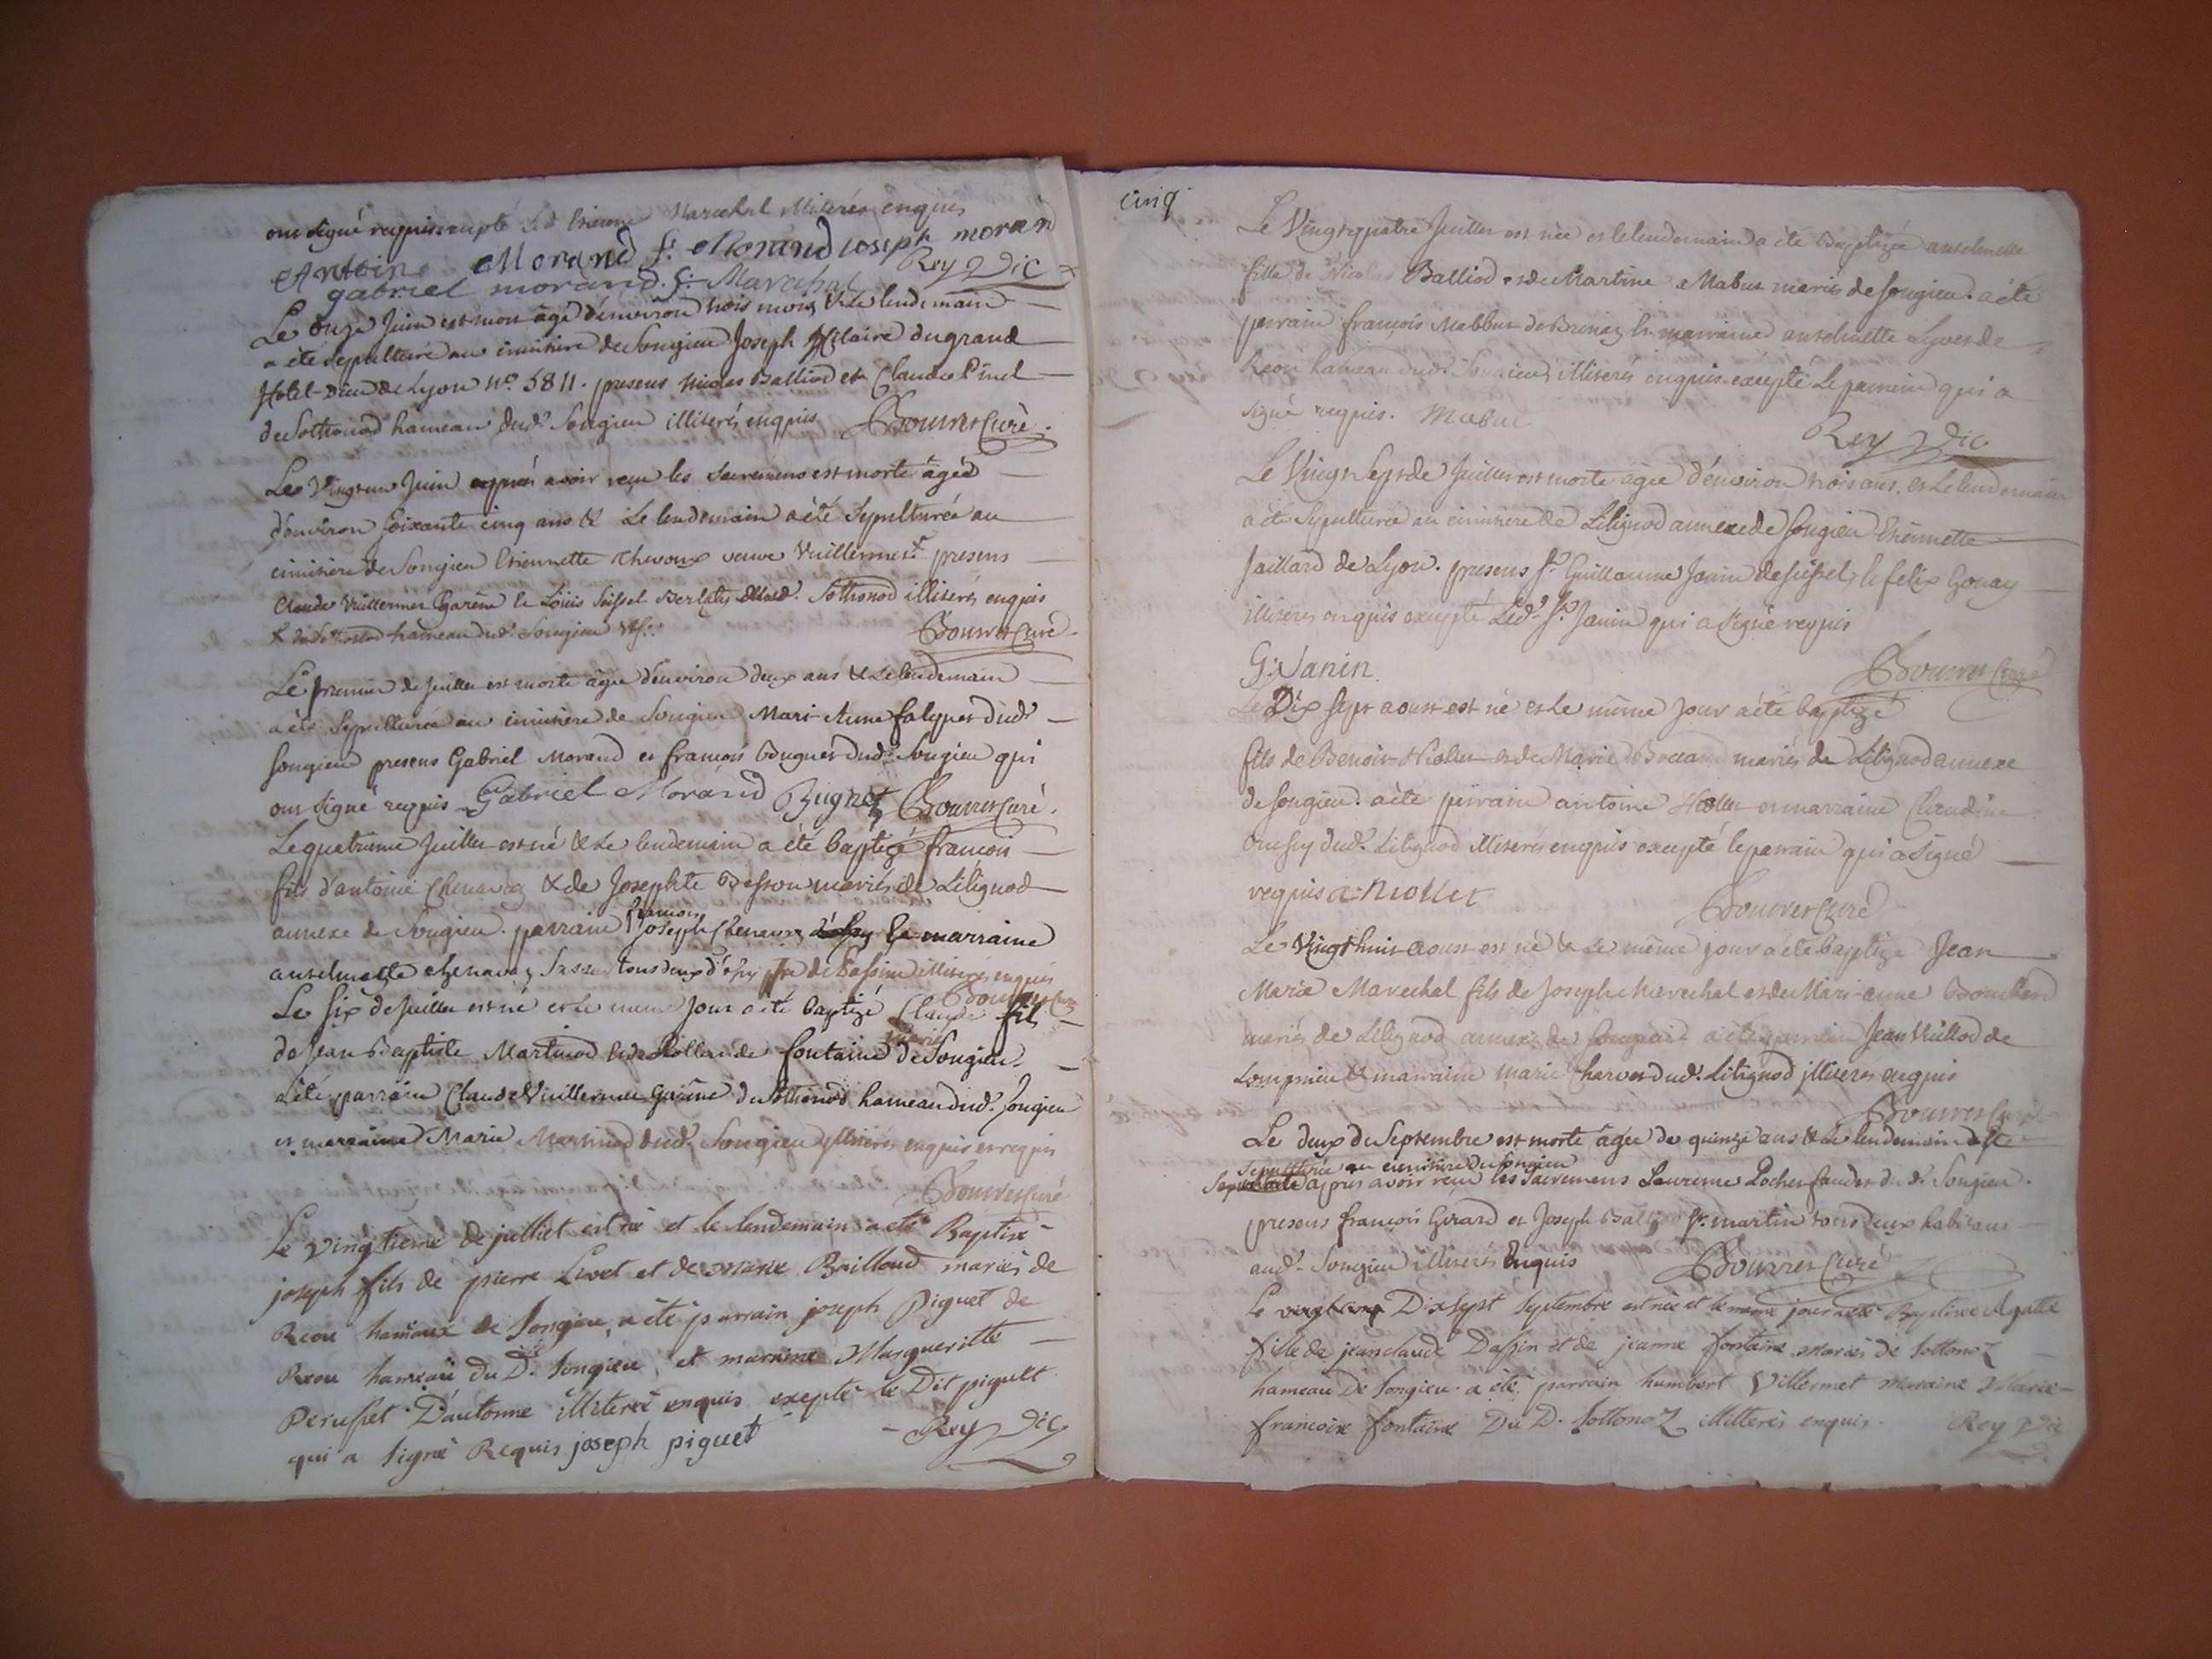 ont signé requis excepté led Etienne Marechal illiterés enquis
Antoine Morand f. Morand joseph morand
gabriel morand. f. Marechal Rey Vic
Le onze Juin est mort âgé d'environ trois mois & le lendemain
a été sepulturé au cimitière de Songieu Joseph Hilaire du grand
Hotel-Dieu de Lyon N° 5811. presens Balliod et Claude Pinel
de Sothonod hameau dud. Songieu illiterés enquis Bouvret Curé.
Le Vingt un Juin apprés avoir reçu les Sacremens est morte âgée
d'environ Soixante cinq ans & Le lendemain a été Sepulturée au
cimitière de Songieu Etiennette veuve Vuillermet presens
Claude Vuillermet Garène & Loüis Seissel Sothonod illiterés enquis
hameau dud. Songieu Bouvret Curé
Le premier de Juillet est morte âgée d'environ deux ans & Le lendemain
a été Sepulturée au cimitiere de Songieu Mari-Anne falquet dud.
Songieu presens Gabriel Morand et françois Bugnet dud. Songieu qui
ont signé requis Gabriel Morand Bugnet Bouvret Curé.
Le quatrieme Juillet est né & Le lendemain a été baptizé francois
fils d'antoine Chenavaz & de Josephte Besson mariés de Lilignod
annexe de Songieu. parrain françois
joseph Chenavaz & marraine
antelmette chenavaz tous deux illiterés enquis
Bouvret Curé
Le six de Juillet est né et le même Jour a été baptizé Claude fils
de Jean Baptiste Martinod & de fontaine mariés de Songieu.
a été parrain Claude Vuillermet Garêne de Sothonod hameau dud. Songieu
et marraine Marie Martinod dud. Songieu illiterés enquis et requis
Bouvret Curé
Le vingtieme de julliet est né et le lendemain a eté Baptisé
joseph fils de pierre Livet et de marie Bailloud mariés de
Reou hameaux de Songieu, a été parrain joseph piguet de
Reou hameau du D. Songieu, et maraine Margueritte
Perusset D'autonne illiteré enquis exepté le Dit piguet
qui a signé Requis joseph piguet Rey Vic
cinq
Le Vingt quatre Juillet est née et le lendemain a été Baptizée antelmette
fille de Nicolas Balliod et de Martine Mabut mariés de Songieu. a été
parrain françois Mabbut de & marraine antelmette Lyvet de
Reou hameau dud. Songieu illiterés enquis excepté Le parrain qui a
signé requis. Mabut
Rey Vic
Le Vingt Sept de Juillet est morte âgée d'environ trois ans, et Le lendemain
a été Sepulturée au cimitiere de Lilignod annexe de Songieu Etiennette
Jaillard de Lyon. presens Sr. Guillaume Janin de & felix Gonay
illiterés enquis excepté Led. Sr. Janin qui a signé requis
G. Janin.
Bouvret Curé
Le Dix Sept aoust est né et Le même Jour a été baptizé
fils de Benoit Niollet et de Marie mariés de Lilignod annexe
de Songieu. a été parrain antoine Niollet et marraine Claudine
dud. Lilignod illiterés enquis excepté le parrain qui a signé
requis a niollet
Bouvret Curé
Le Vingt huit aoust est né & Le même jour a été baptizé Jean
Marie Marechal fils de Joseph Marechal et de Mari-anne
mariés de Lilignod annexe de Songieu a été parrain Jean Vuillod de
Lompnieu & marraine marie dud. Lilignod illiterés enquis
Bouvret Curé
Le deux de Septembre est morte âgée de quinze ans & Le lendemain a été
Sepulturée au cimitière de Songieu
après avoir reçu les Sacremens dud. Songieu.
presens françois Girard et Joseph St. martin tous deux habitans
aud. Songieu illiterés Enquis Bouvret Curé
Le Dix sept Septembre est née et le meme jour a été Baptisée Agathe
fille de jean claude Dassin et de jeanne fontaine mariés de Sottonoz
hameau De Songieu. a été parrain humbert Villermet maraine Marie
francoise fontaine Du D. Sottonoz illitterés enquis. Rey Vic